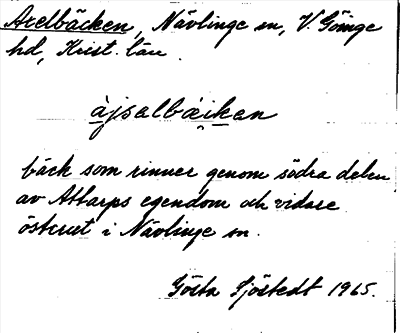 Axelbäcken, Nävlinge sn, V. Göinge
hd, Krist. län
àjsalbǽikan
bäck som rinner genom södra delen
av Attarps egendom och vidare
österut i Nävlinge sn.
Gösta Sjöstedt 1965.